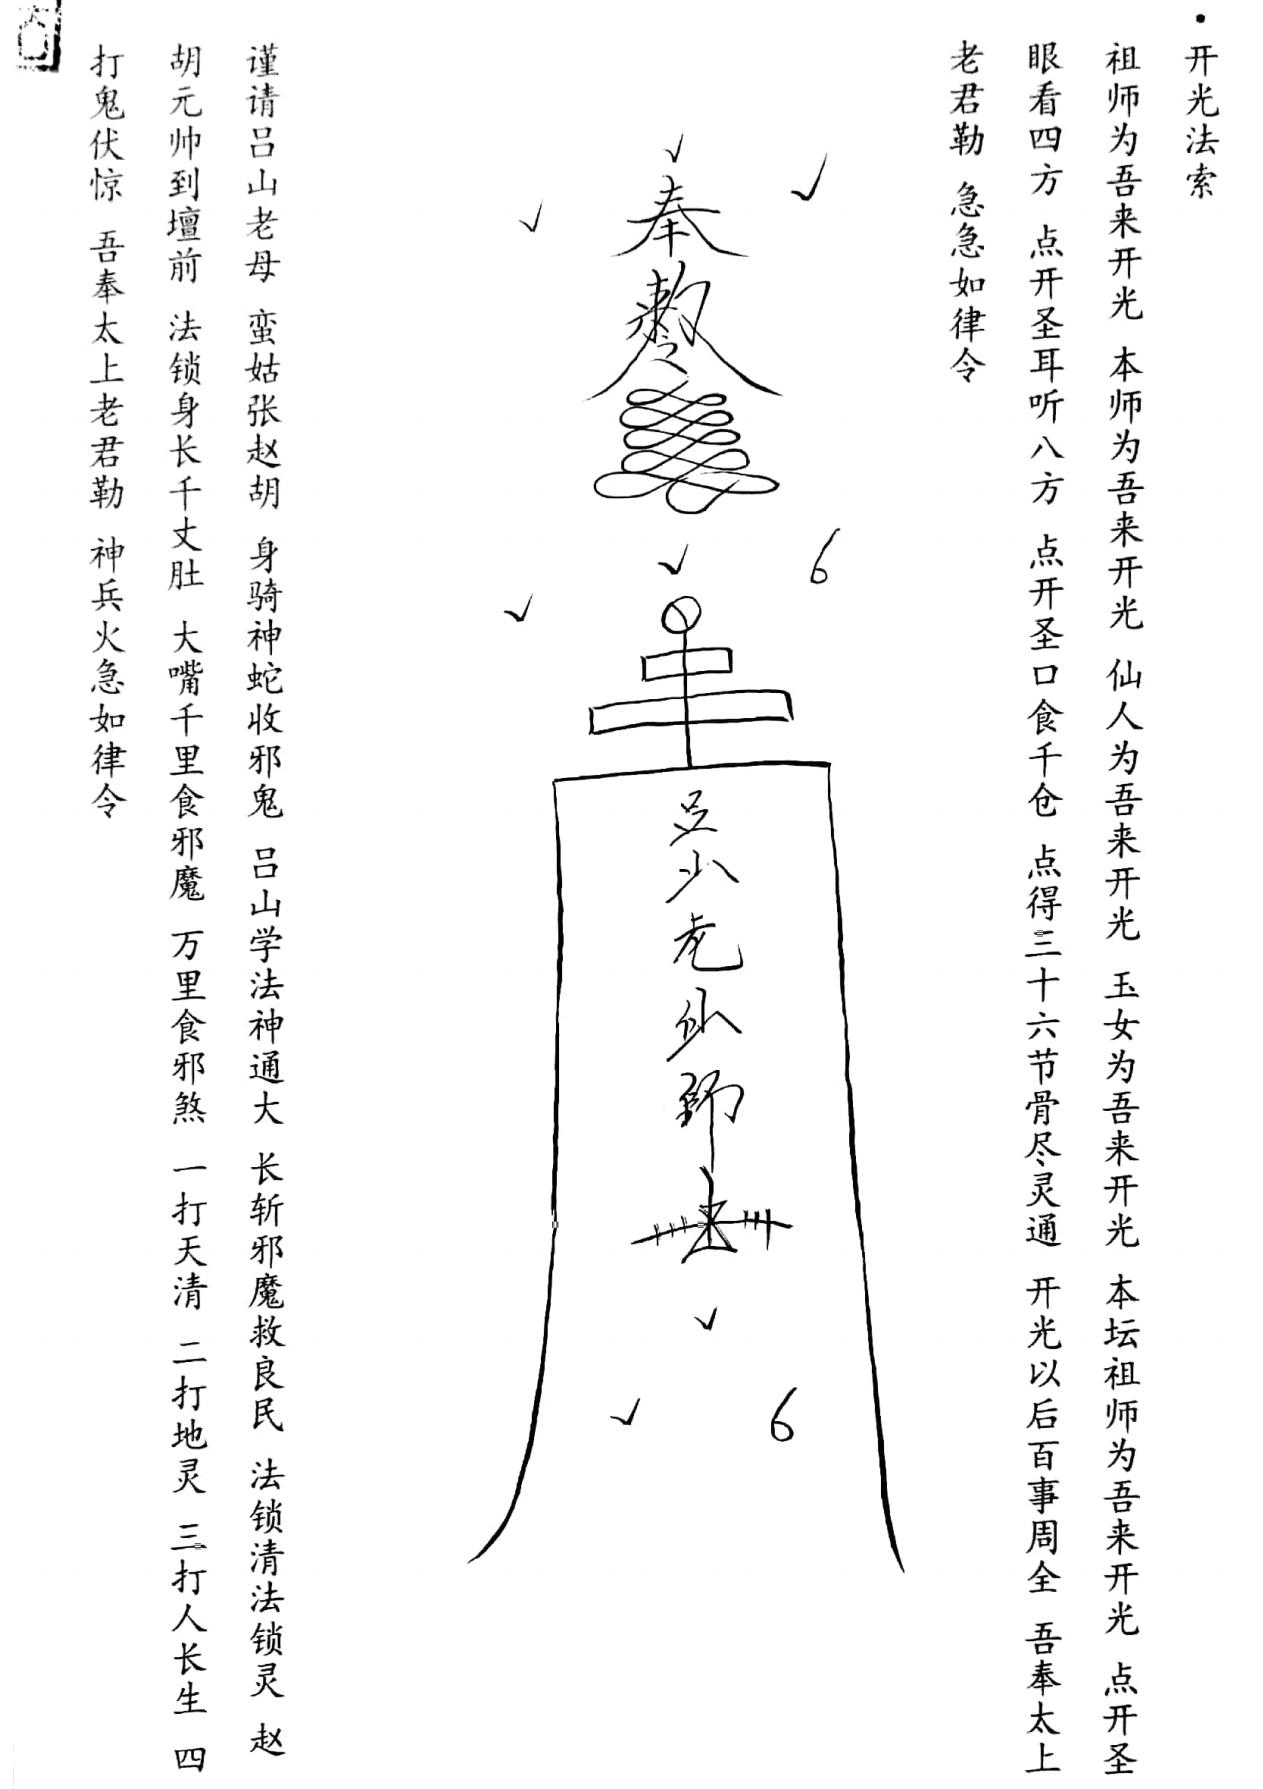 开光法索
祖师为吾来开光 本师为吾来开光 仙人为吾来开光 玉女为吾来开光 本坛祖师为吾来开光 点开圣
眼看四方 点开圣耳听八方 点开圣口食千仓 点得三十六节骨尽灵通 开光以后百事周全 吾奉太上
老君勒 急急如律令
奉
勅令
6
6
谨请吕山老母 蛮姑张赵胡 身骑神蛇收邪鬼 吕山学法神通大 长斩邪魔救良民 法锁清法锁灵 赵
胡元帅到壇前 法锁身长千丈肚 大嘴千里食邪魔 万里食邪煞 一打天清 二打地灵 三打人长生 四
打鬼伏惊 吾奉太上老君勒 神兵火急如律令